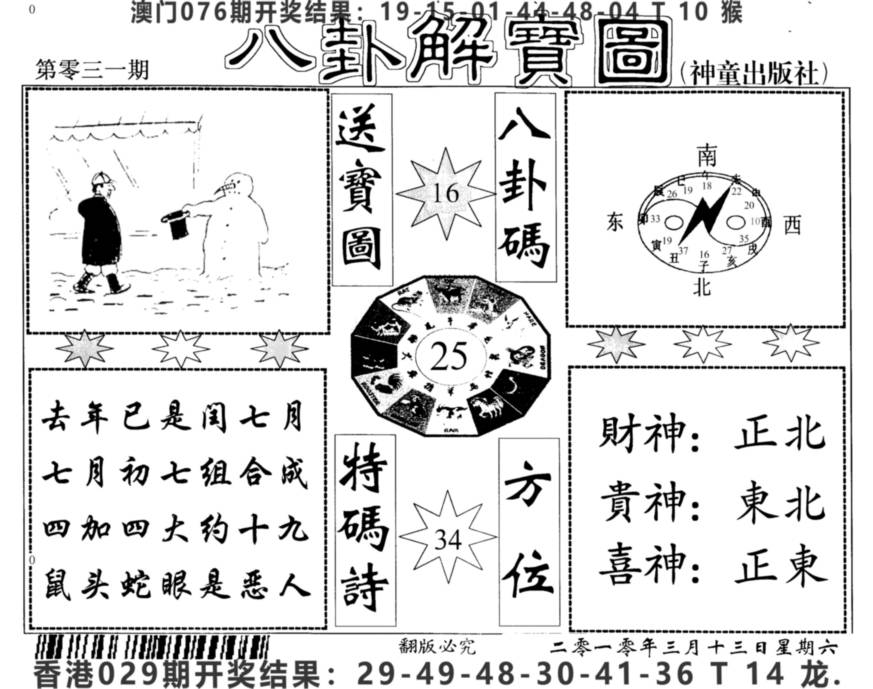 0
澳门076期开奖结果：19-15-01-44-48-04 T 10 猴
第零三一期
八卦解寶圖
(神童出版社)
送寶圖
16
八卦碼
南
巳 午 未
辰 26 19 18 22 申
20
东 卯 33 10 酉 西
寅 19 35 戌
丑 37 16 27 亥
子
北
25
HARE
DRAGON
去年已是闰七月
七月初七组合成
四加四大约十九
鼠头蛇眼是恶人
0
特碼詩
34
方位
財神：正北
貴神：東北
喜神：正東
翻版必究
二零一零年三月十三日星期六
香港029期开奖结果：29-49-48-30-41-36 T 14 龙.